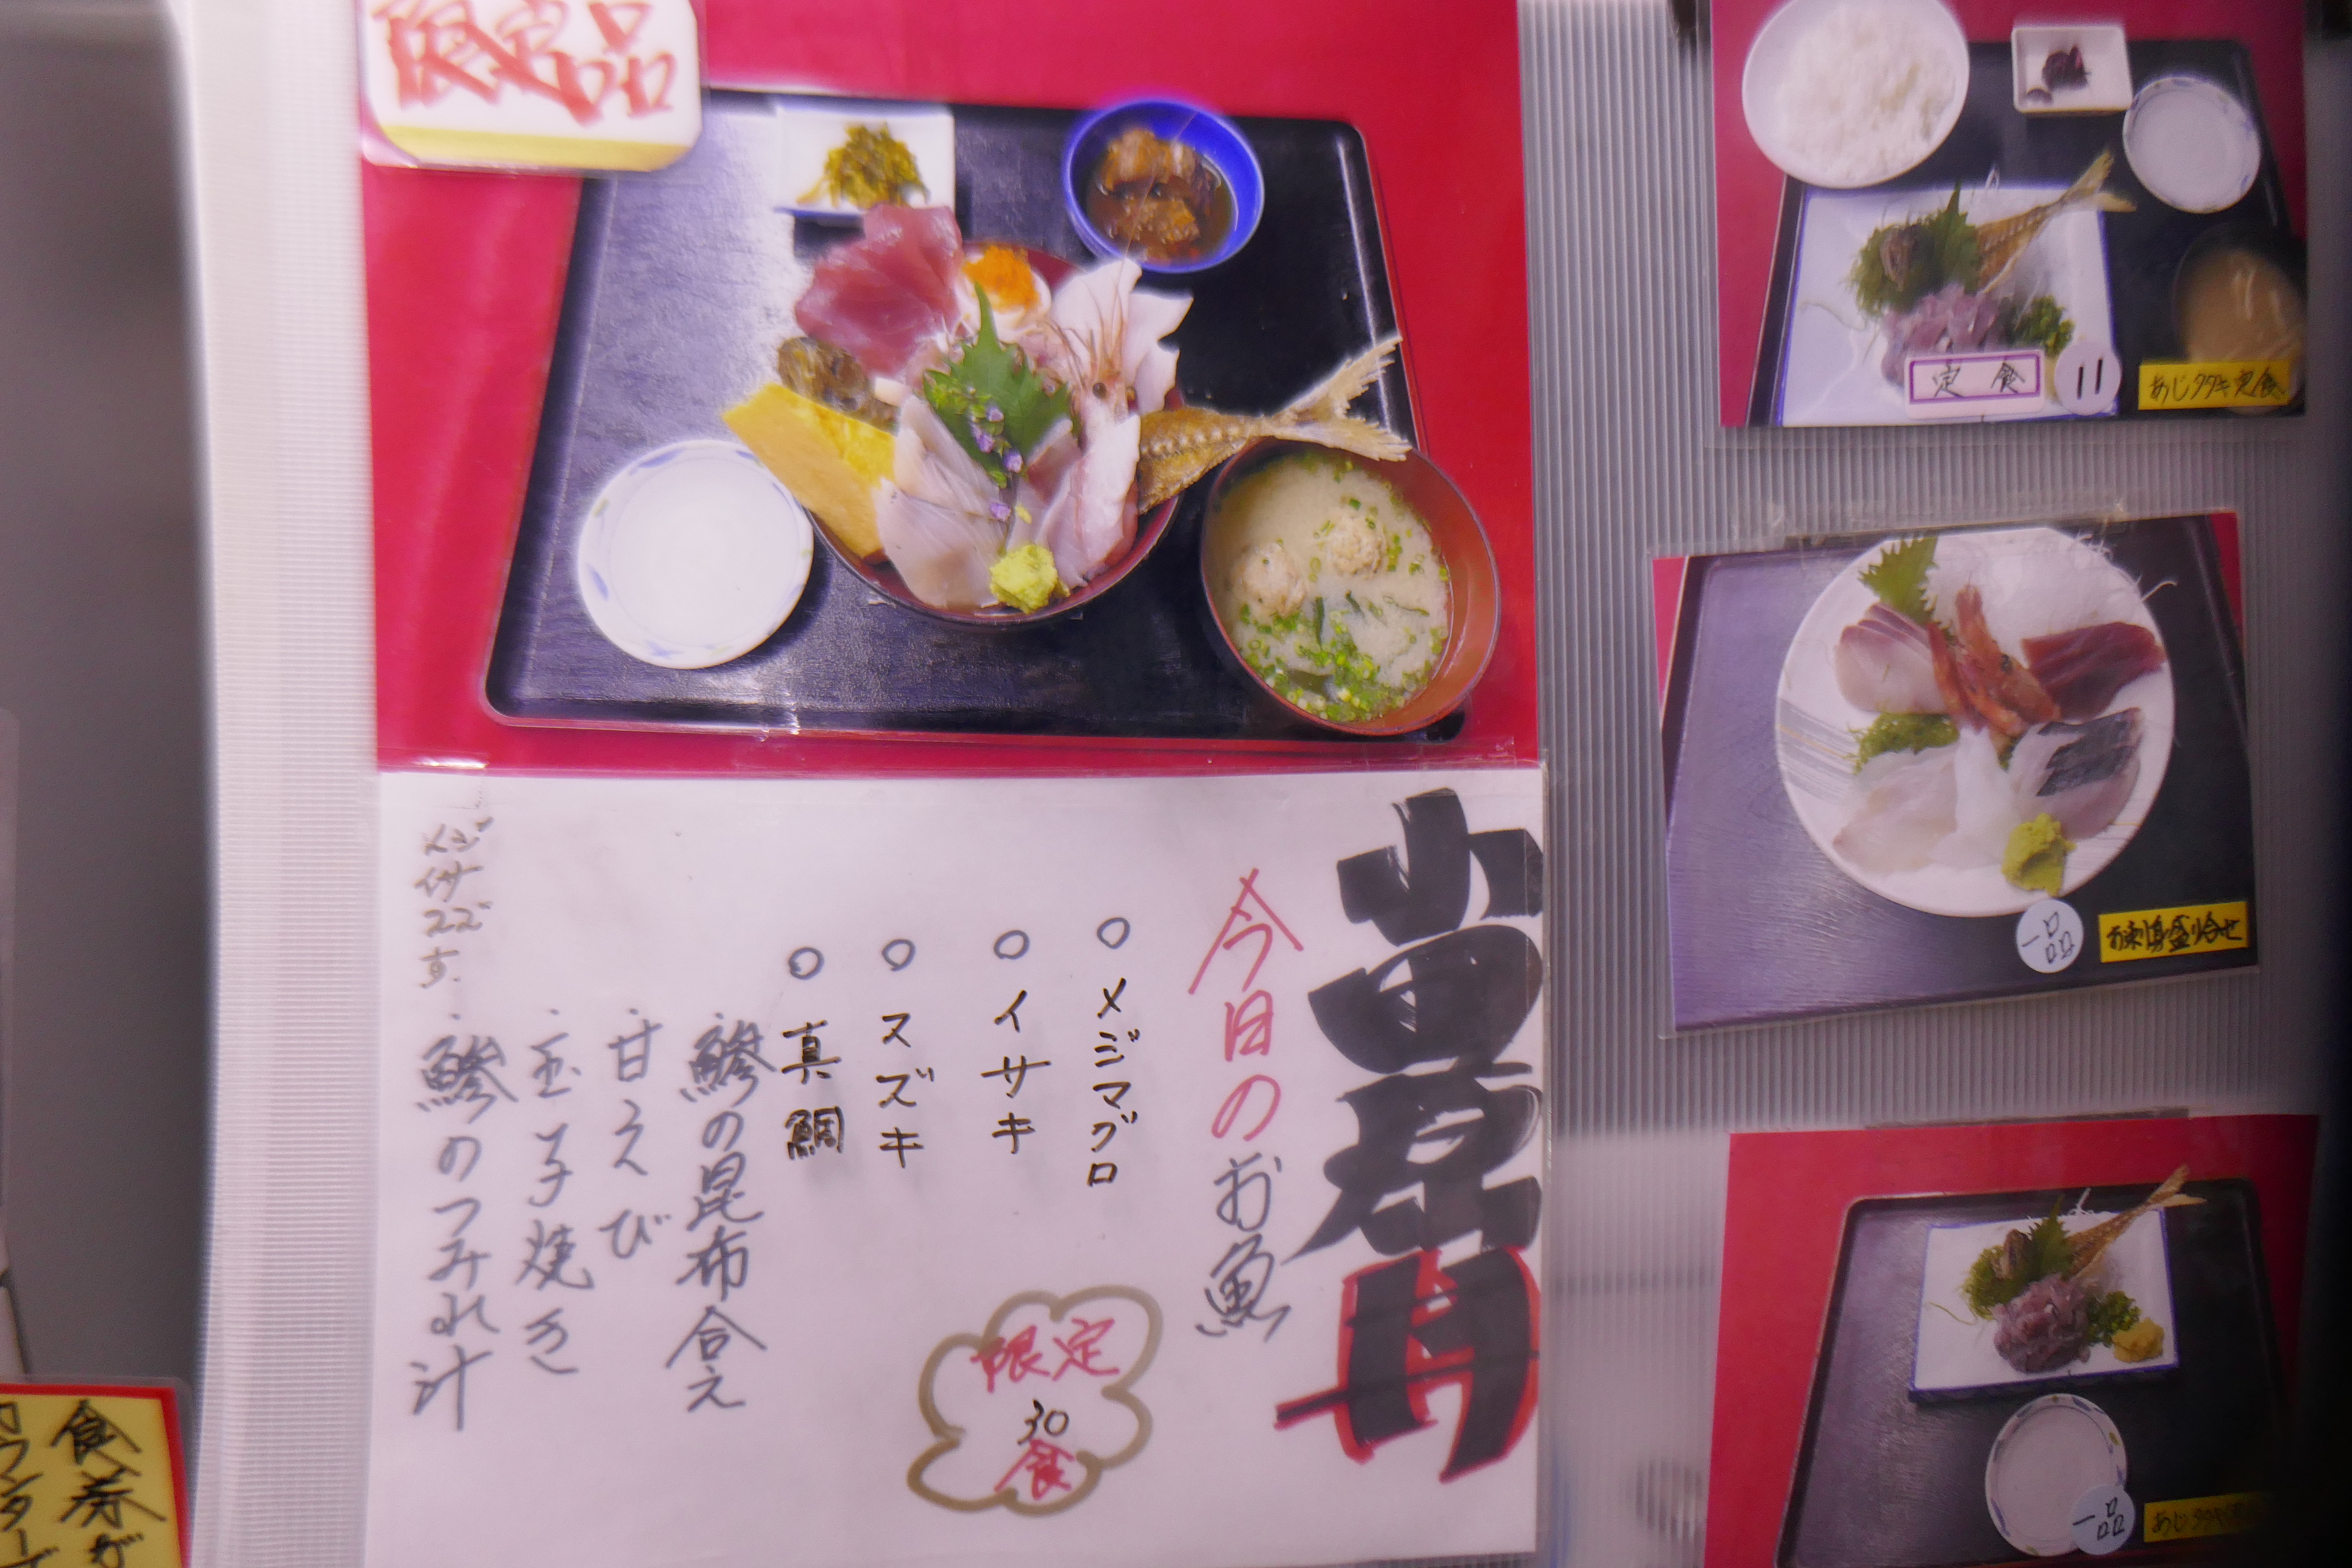 限定品
定食
11
あじタタキ定食
一品
お刺身盛り合せ
今日のお魚
○メジマグロ
○イサキ
○スズキ
○真鯛
鯵の昆布合え
・甘えび
・玉子焼き
・鯵のつみれ汁
限定
30
食
メジ
イサ
スズ
一品
あじタタキ
食券が
カウンターで